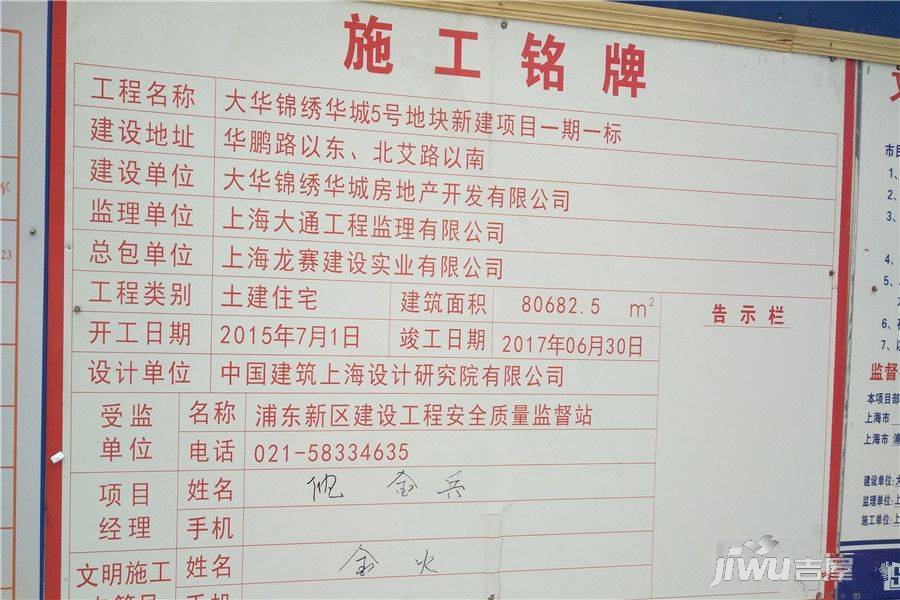 施工铭牌
工程名称 大华锦绣华城5号地块新建项目一期一标
建设地址 华鹏路以东、北艾路以南
建设单位 大华锦绣华城房地产开发有限公司
监理单位 上海大通工程监理有限公司
总包单位 上海龙赛建设实业有限公司
工程类别 土建住宅 建筑面积 80682.5 m²
告示栏
开工日期 2015年7月1日 竣工日期 2017年06月30日
设计单位 中国建筑上海设计研究院有限公司
受监单位 名称 浦东新区建设工程安全质量监督站
电话 021-58334635
项目经理 姓名 倪金兵
手机
文明施工 姓名 金火
市民
1、
2、
3、
4、
5、
6、
7、
监督
本项目部
上海市
上海市 浦
建设单位:大
监理单位:上
施工单位:上
23
jiwu吉屋